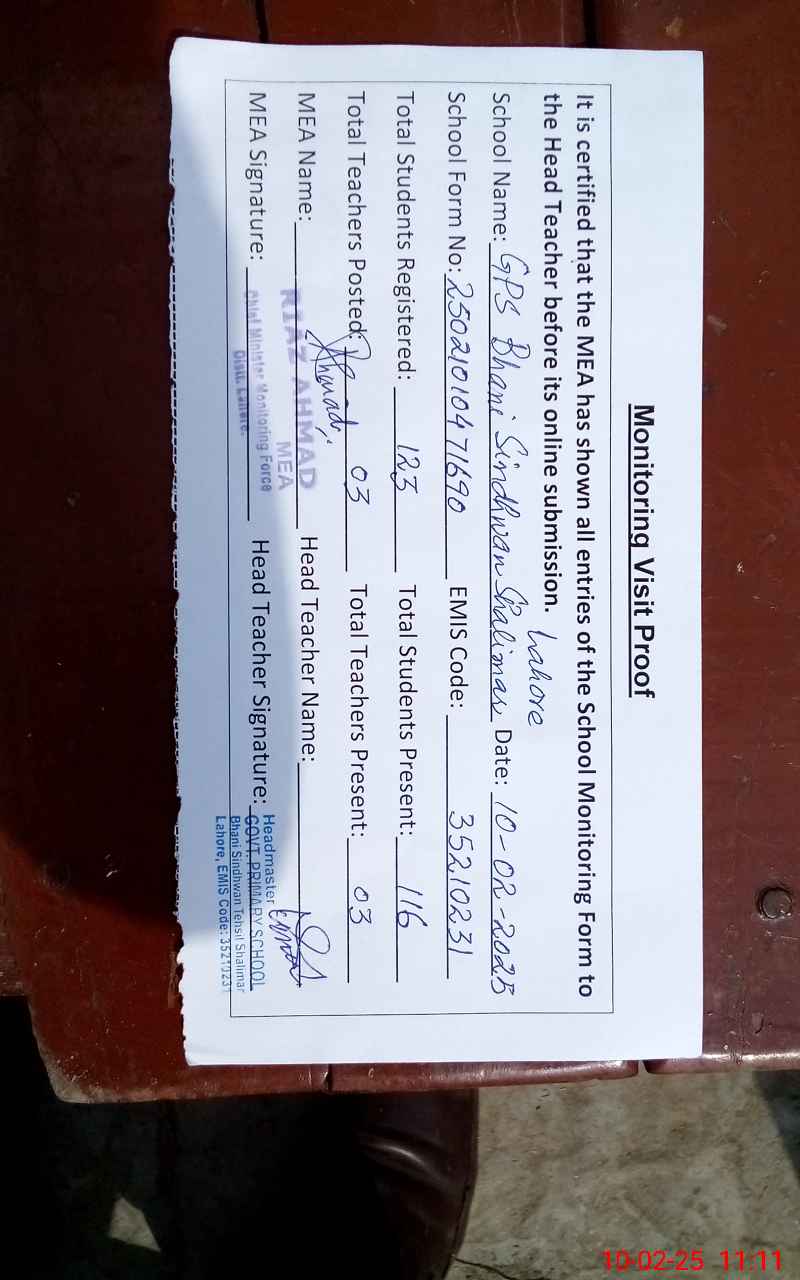 Monitoring Visit Proof
It is certified that the MEA has shown all entries of the School Monitoring Form to
the Head Teacher before its online submission.
Lahore
School Name: GPS Bhani Sindhwan Shalimar Date: 10-02-2025
School Form No: 25021010471690 EMIS Code: 35210231
Total Students Registered: 123 Total Students Present: 116
Total Teachers Posted: 03 Total Teachers Present: 03
MEA Name: RIAZ AHMAD Head Teacher Name:
MEA
MEA Signature: Chief Minister Monitoring Force Head Teacher Signature:
Distt. Lahore.
Headmaster
GOVT. PRIMARY SCHOOL
Bhani Sindhwan Tehsil Shalimar
Lahore, EMIS Code: 35210231
10-02-25 11:11